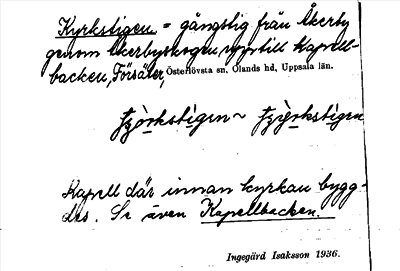 Kyrkstigen = gångstig från Åkerby
genom Åkerbyskogen, upp till Kapell-
backen, Försäter, Österlövsta sn, Olands hd, Uppsala län.
Kapell där innan kyrkan bygg-
des. Se även Kapellbacken.
Ingegärd Isaksson 1936.